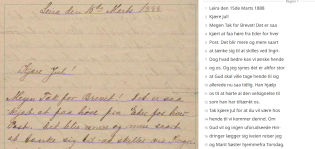 Leira den 15de Marts 1888
Kjære Jul!
Megen Tak for Brevet! Det er saa
kjært at faa høre fra Eder for hver
Post. Det blir mere og mere saart
at tænke sig til at skilles ved Inger.
Leira den 15de Marts 1888
Kjære Jul!
Megen Tak for Brevet! Det er saa
kjært at faa høre fra tider for hver
Post. Det blir mere og mere saart
at tænke sig til at skilles ved Ingri.
Dog hvad bedre kan vi ønske hende
og os. Og jeg synes det er altfor stor
at Gud skal ville tage hende til sig
allerede nu saa tidlig. Han hjælp
os til at bære al den velsignelse til
som han har tiltænkt os.
Tak kjære Jul for at du vil være hos
hende til vi kommer derind. Om
Gud vil og ingen uforudseede Hin-
dringer lægger sig reiser naar jeg
og Marit Sæter hjemmefra Torsdag.